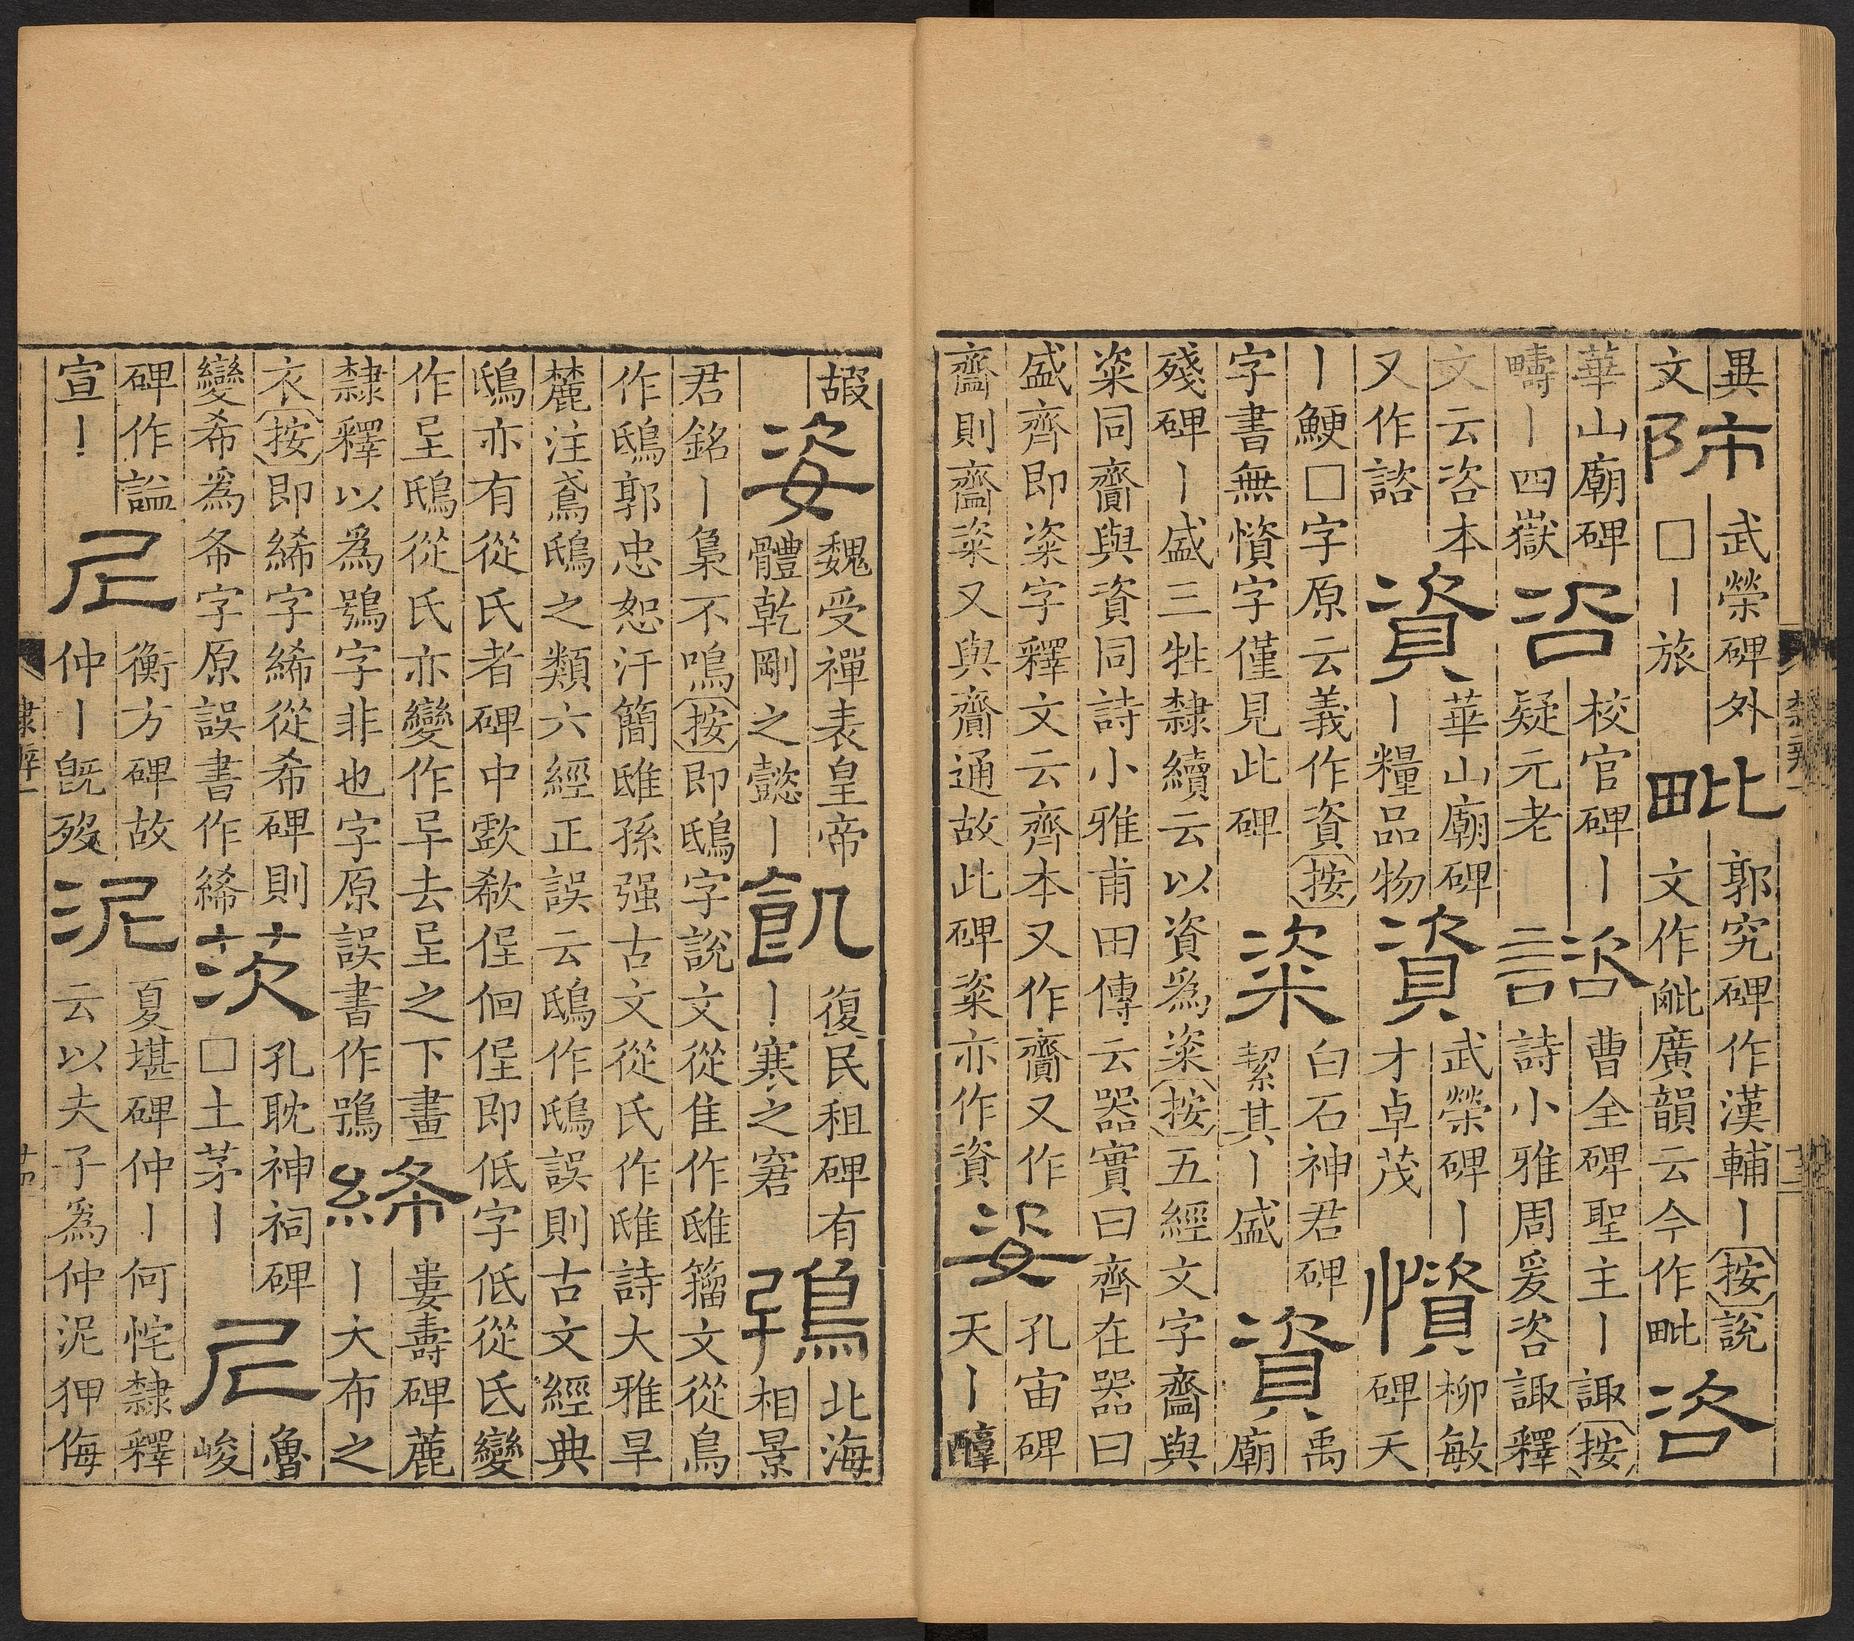 異
文
武榮碑外
□｜旅
毗
郭究碑作漢輔｜按說
文作毗廣韻云今作毗
咨
華山廟碑
疇｜四嶽
咨
校官碑｜
疑元老
諮
曹全碑聖主｜諏按
詩小雅周爰咨諏釋
文云咨本
又作諮
資
華山廟碑
｜糧品物
資
武榮碑｜
才卓茂
懫
柳敏
碑天
｜鯁□字原云義作資按
字書無懫字僅見此碑
粢
白石神君碑
絜其｜盛
資
禹
廟
殘碑｜盛三牲隸續云以資爲粢按五經文字齍與
粢同齎與資同詩小雅甫田傳云器實曰齊在器曰
盛齊即粢字釋文云齊本又作齎又作
齍則齍粢又與齎通故此碑粢亦作資
姿
孔宙碑
天｜醇
嘏
姿
魏受禪表皇帝
體乾剛之懿｜
飢
復民租碑有
｜寒之窘
鴟
北海
相景
君銘｜梟不鳴按即鴟字說文從隹作雎籀文從鳥
作鴟郭忠恕汗簡雎孫强古文從氐作雎詩大雅旱
麓注鳶鴟之類六經正誤云鴟作鴟誤則古文經典
鴟亦有從氐者碑中歔欷侄徊侄即低字低從氐變
作𦤶鴟從氐亦變作去之下畫
隸釋以爲鶚字非也字原誤書作鴞
絺
婁壽碑麄
｜大布之
衣按即絺字絺從希碑則
變希爲字原誤書作絺
茨
孔耽神祠碑
□土茅｜
尼
魯
峻
碑作謚
宣｜
尼
衡方碑故
仲｜既歿
泥
夏堪碑仲｜何侘隸釋
云以夫子爲仲泥狎侮